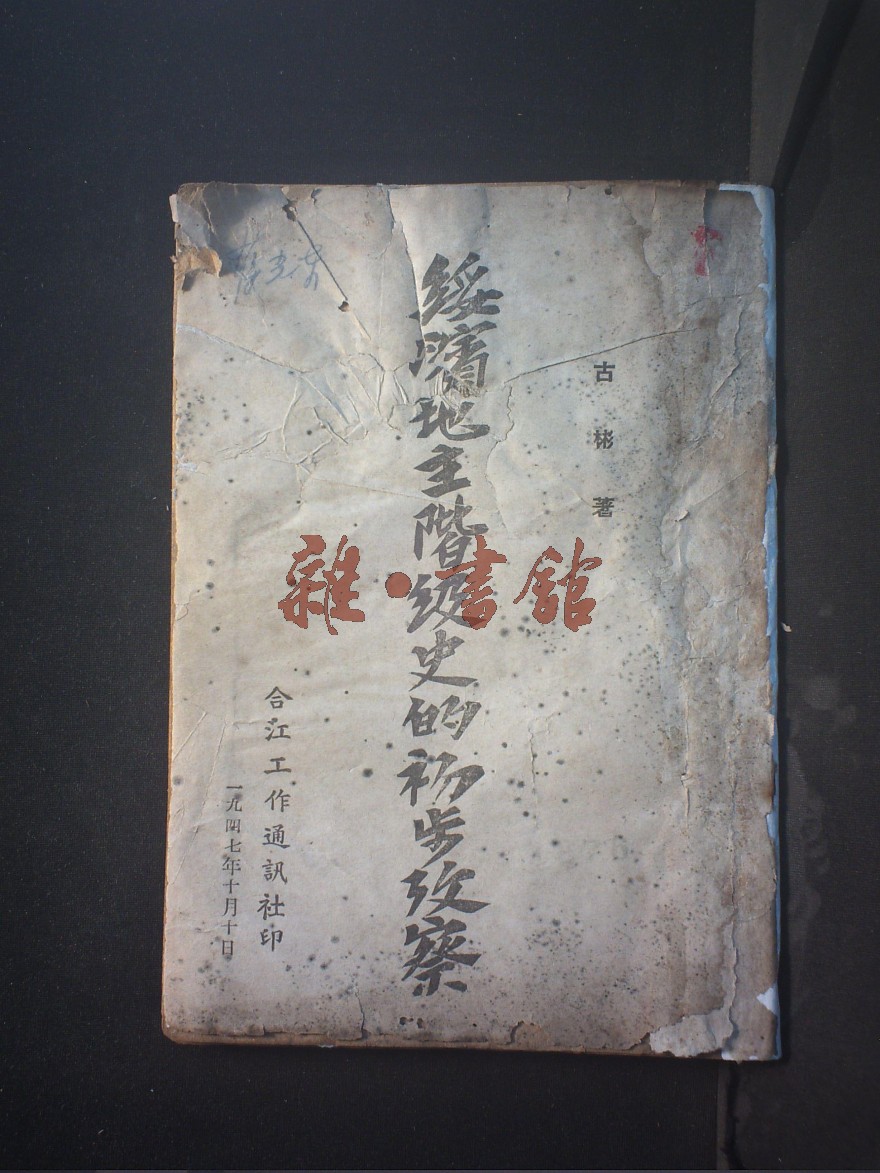 古彬著
綏濱地主階級史的初步攷察
合江工作通訊社印
一九四七年十月十日
雜·書館